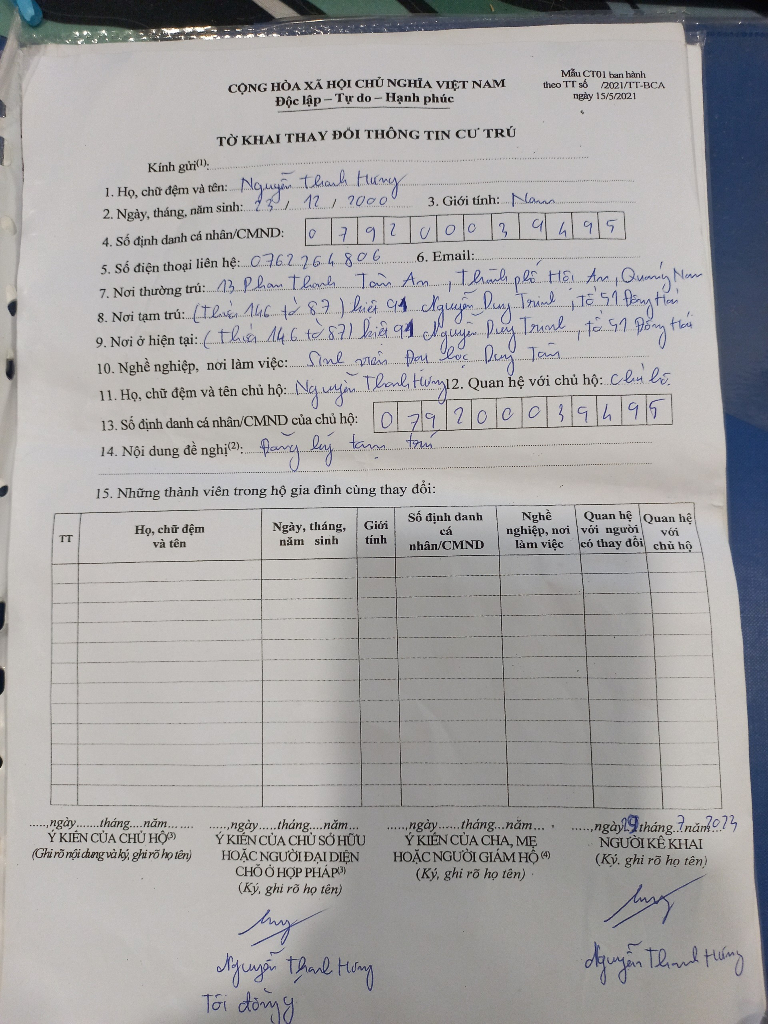 CỘNG HÒA XÃ HỘI CHỦ NGHĨA VIỆT NAM
Độc lập – Tự do – Hạnh phúc
Mẫu CT01 ban hành
theo TT số /2021/TT-BCA
ngày 15/5/2021
TỜ KHAI THAY ĐỔI THÔNG TIN CƯ TRÚ
Kính gửi(1):
1. Họ, chữ đệm và tên: Nguyễn Thanh Hưng
2. Ngày, tháng, năm sinh: 23 / 12 / 2000 3. Giới tính: Nam
4. Số định danh cá nhân/CMND: 0 7 9 2 0 0 0 3 9 4 9 5
5. Số điện thoại liên hệ: 0762264806 6. Email:
7. Nơi thường trú: 13 Phan Thanh Tân An, Thành phố Hội An, Quảng Nam
8. Nơi tạm trú: (Thửa 146 tờ 87) kiệt 91 Nguyễn Duy Trinh, Tổ 51 Đông Hải
9. Nơi ở hiện tại: (Thửa 146 tờ 87) kiệt 91 Nguyễn Duy Trinh, tổ 51 Đông Hải
10. Nghề nghiệp, nơi làm việc: Sinh viên Đại học Duy Tân
11. Họ, chữ đệm và tên chủ hộ: Nguyễn Thanh Hưng 12. Quan hệ với chủ hộ: chủ hộ.
13. Số định danh cá nhân/CMND của chủ hộ: 0 7 9 2 0 0 0 3 9 4 9 5
14. Nội dung đề nghị(2): Đăng ký tạm trú
15. Những thành viên trong hộ gia đình cùng thay đổi:
TT Họ, chữ đệm và tên Ngày, tháng, năm sinh Giới tính Số định danh cá nhân/CMND Nghề nghiệp, nơi làm việc Quan hệ với người có thay đổi Quan hệ với chủ hộ
.....,ngày.......tháng...năm.......
Ý KIẾN CỦA CHỦ HỘ(3)
(Ghi rõ nội dung và ký, ghi rõ họ tên)
.....,ngày......tháng...năm...
Ý KIẾN CỦA CHỦ SỞ HỮU
HOẶC NGƯỜI ĐẠI DIỆN
CHỖ Ở HỢP PHÁP(3)
(Ký, ghi rõ họ tên)
Nguyễn Thanh Hưng
Tôi đồng ý
.....,ngày......tháng...năm...
Ý KIẾN CỦA CHA, MẸ
HOẶC NGƯỜI GIÁM HỘ (4)
(Ký, ghi rõ họ tên)
.....,ngày 29 tháng 7 năm 2023
NGƯỜI KÊ KHAI
(Ký, ghi rõ họ tên)
Nguyễn Thanh Hưng